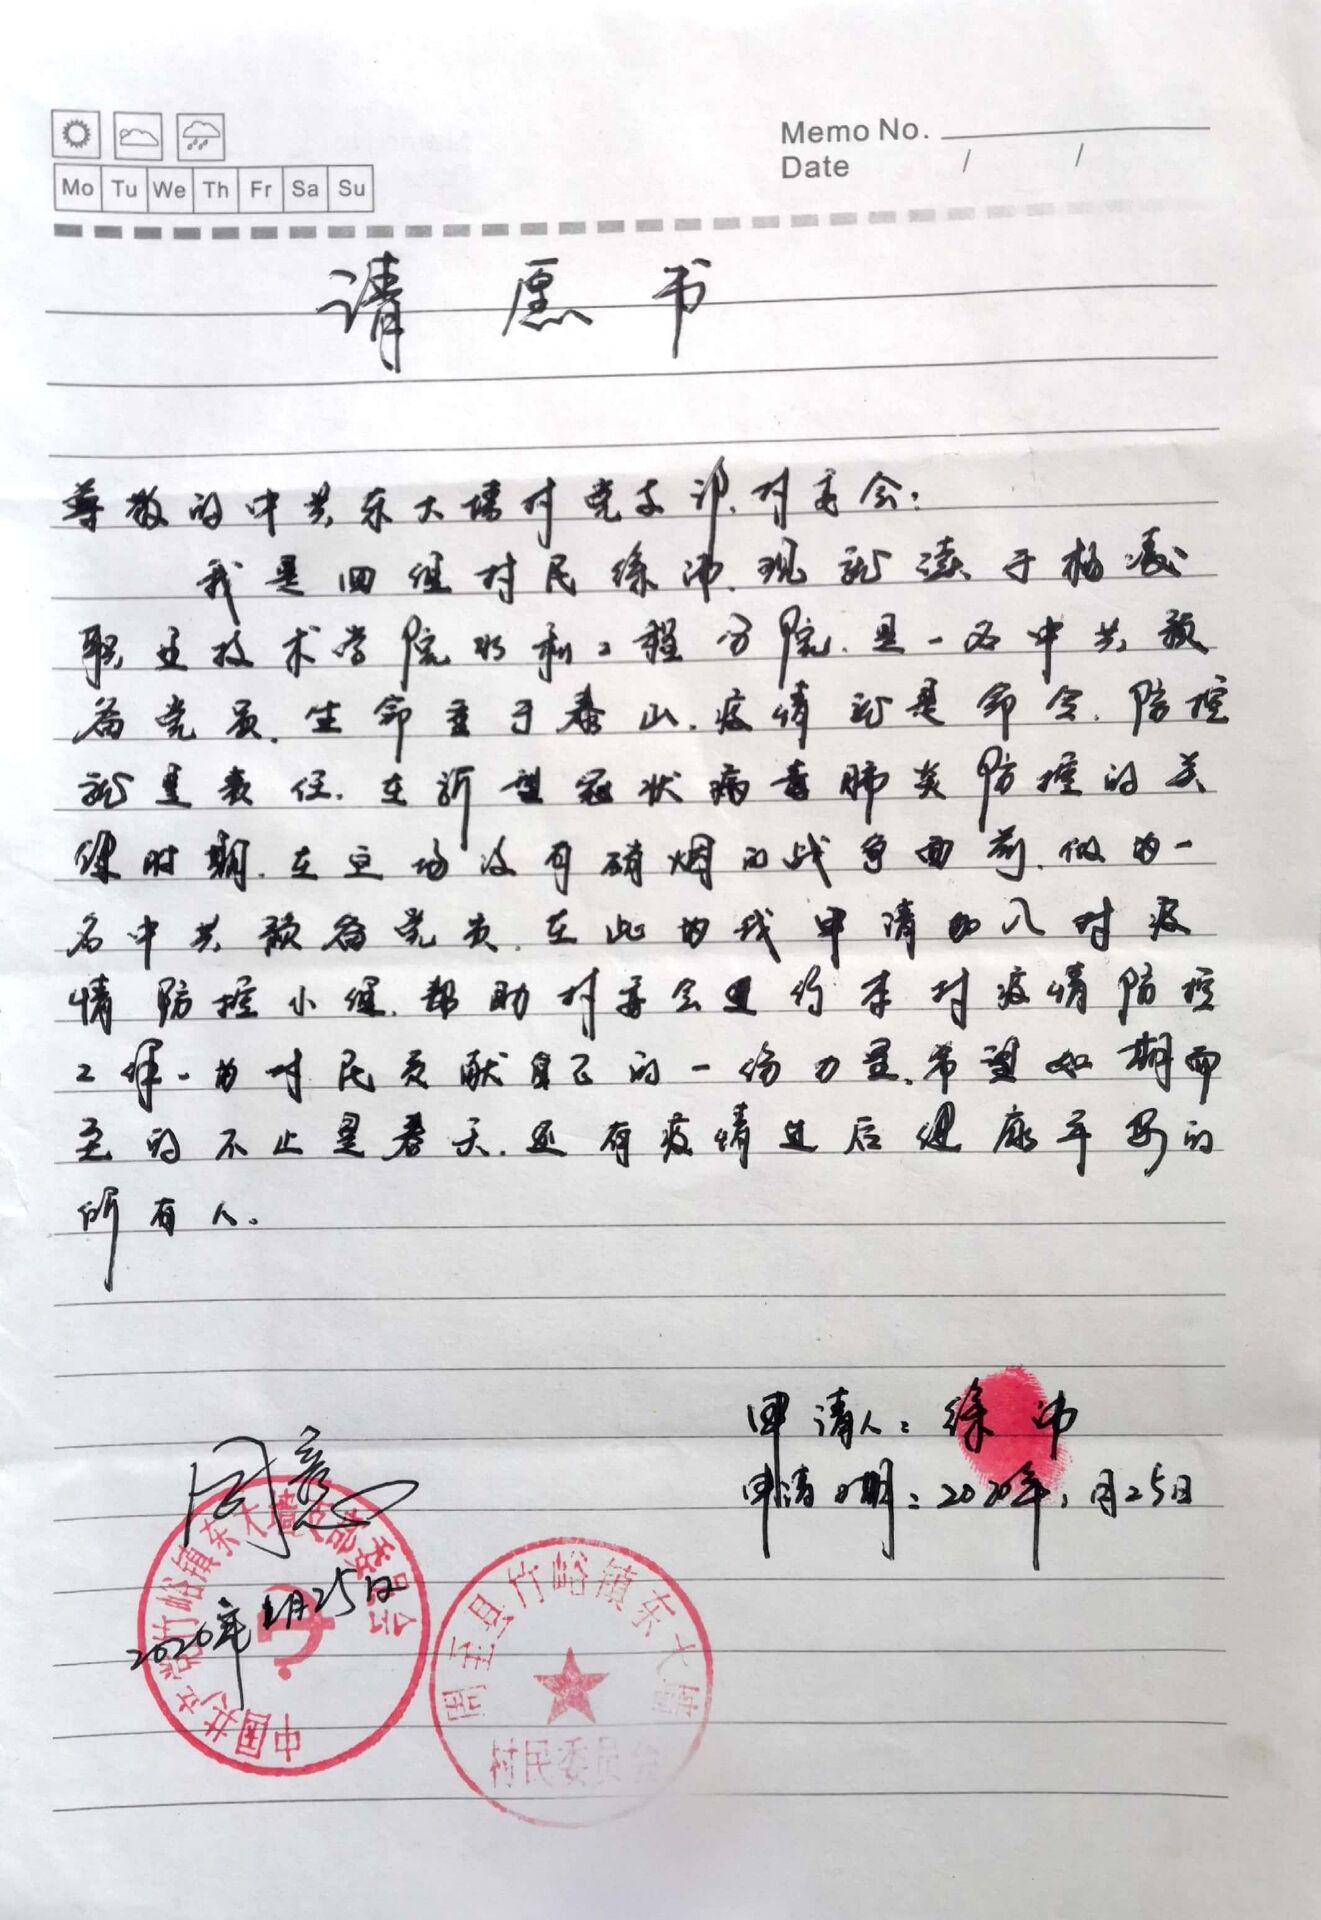 Memo No.
Date / /
Mo Tu We Th Fr Sa Su
请愿书
尊敬的中共东大墙村党支部、村委会:
我是四组村民徐沛,现就读于杨凌
职业技术学院水利工程分院,是一名中共预
备党员,生命重于泰山,疫情就是命令,防控
就是责任,在新型冠状病毒肺炎防控的关
键时期,在这场没有硝烟的战争面前,做为一
名中共预备党员,在此我申请加入村疫
情防控小组,帮助村委会进行本村疫情防控
工作,为村民贡献自己的一份力量,希望如期而
至的不止是春天,还有疫情过后健康平安的
所有人。
申请人:徐沛
申请日期:2020年1月25日
同意
2020年1月25日
中国共产党竹峪镇东大墙支部委员会
周至县竹峪镇东大墙
村民委员会